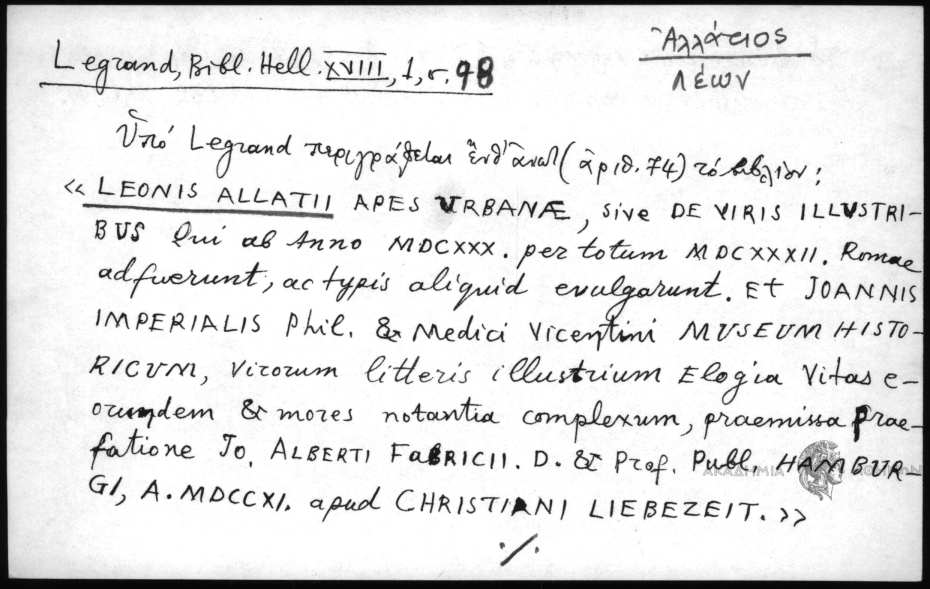 Ἀλλάτιος
Λέων
Legrand, Bibl. Hell. XVIII, 1, σ. 98
Ὑπό Legrand περιγράφεται ἐνθ' ἀνωτ. (ἀριθ. 74) τό βιβλίον:
«LEONIS ALLATII APES URBANÆ, sive DE VIRIS ILLUSTRI-
BUS Qui ab Anno MDCXXX. per totum MDCXXXII. Romae
adfuerunt, ac typis aliquid evulgarunt. Et JOANNIS
IMPERIALIS Phil. & Medici Vicentini MUSEUM HISTO-
RICUM, virorum litteris illustrium Elogia Vitas e-
orumdem & mores notantia complexum, praemissa Prae-
fatione Jo. ALBERTI FABRICII. D. & Prof. Publ. HAMBUR-
GI, A. MDCCXI. apud CHRISTIANI LIEBEZEIT.»
ΑΚΑΔΗΜΙΑ ΑΘΗΝΩΝ
·/.